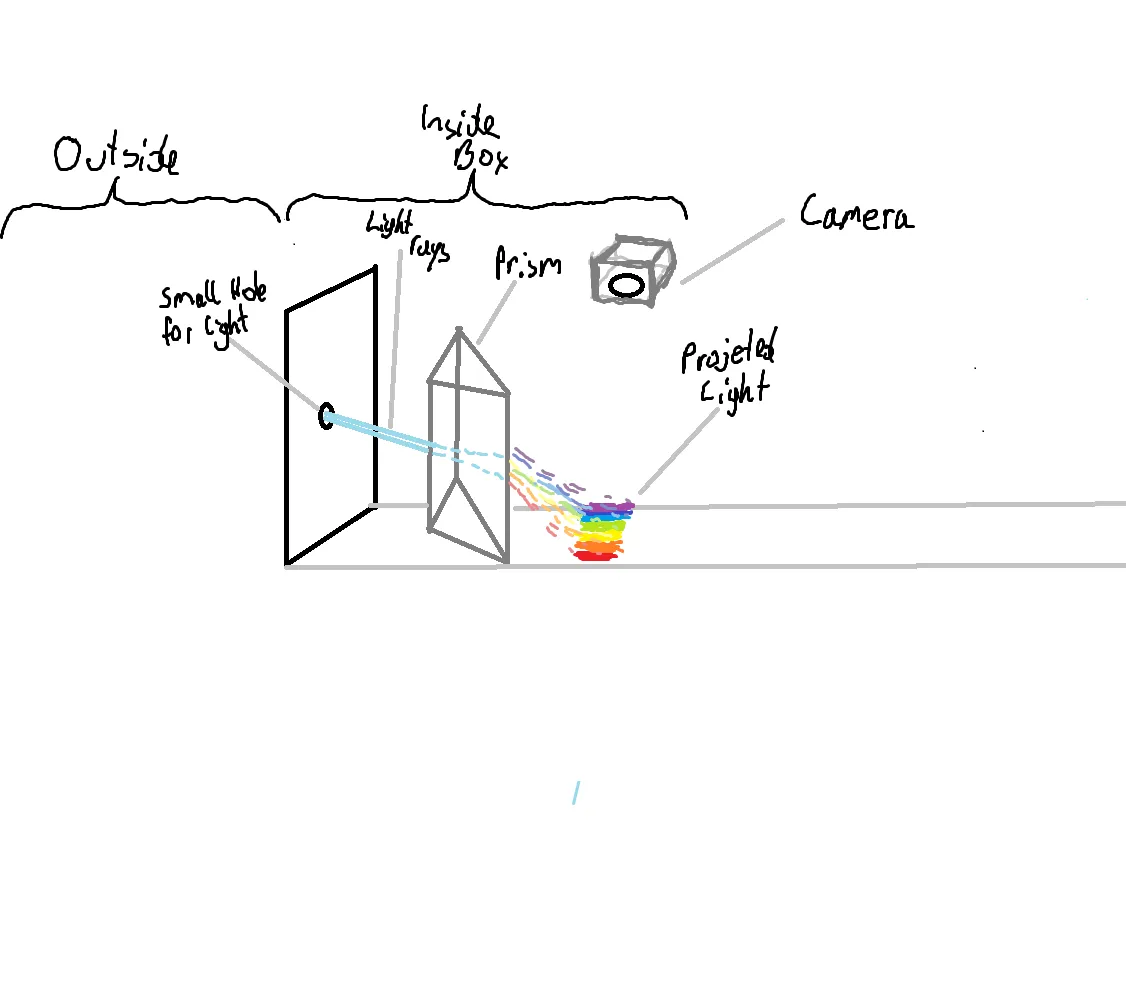 Outside
Inside
Box
Light
rays
Prism
Camera
Small Hole
for Light
Projeted
Light